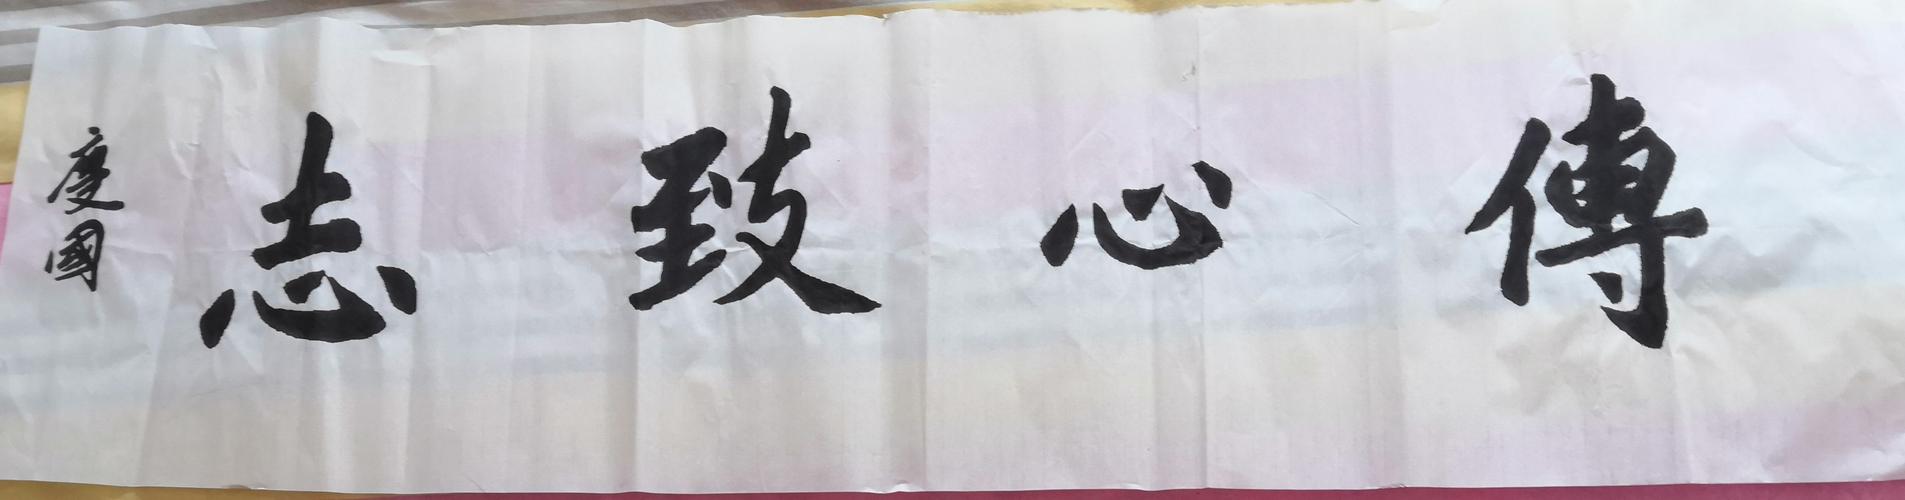 傳心致志
慶國